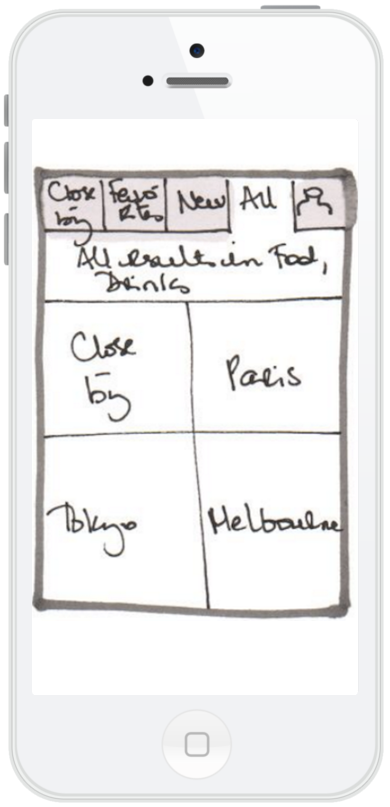 Close by
Favorites
New
All
All results in Food,
Drinks
Close
by
Paris
Tokyo
Melbourne